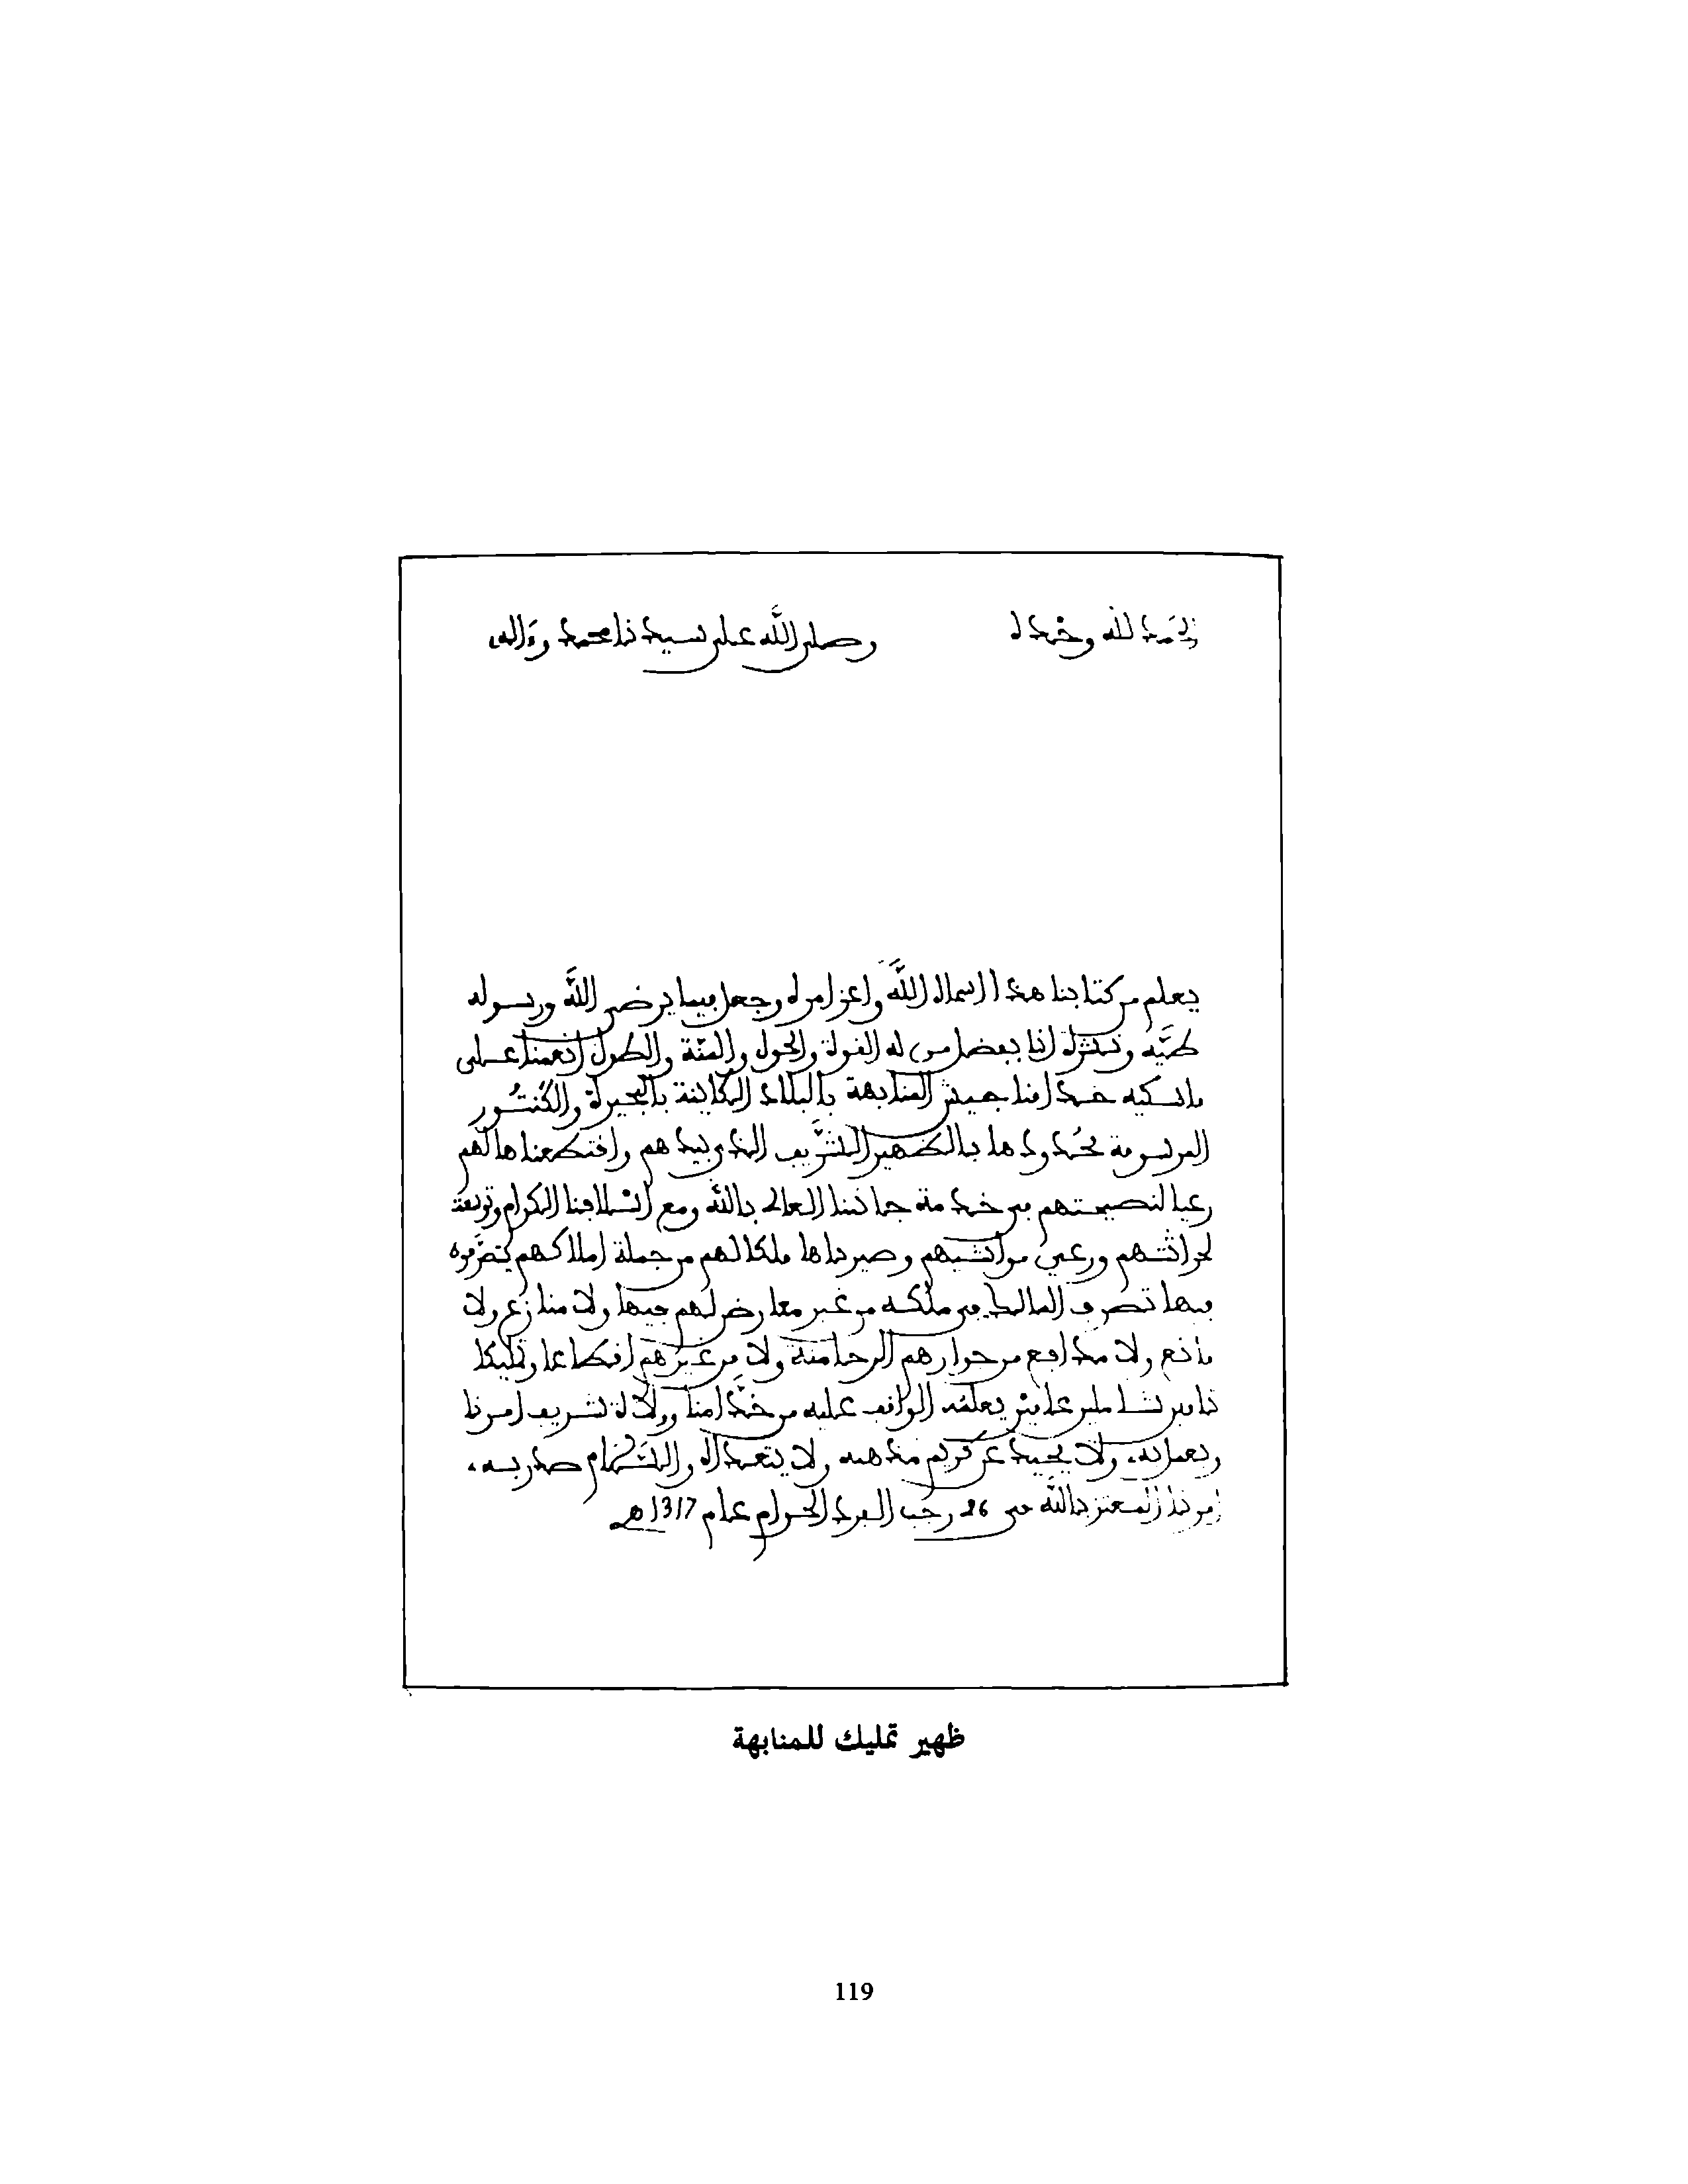 الحمد لله وحده
وصلى الله على سيدنا محمد وءاله
يعلم من كتابنا هذا اسماه الله واعز امره وجعل فيما يرضي الله ورسوله
طيه ونشره اننا بفضل من له القوة والحول والمنة والطول انعمنا على
ماسكيه خدامنا جيش المنابهة بالبلاد الكائنة بالبحيرة والكنتور
المرسومة بحدودها بالظهير الشريف الذي بيدهم واقتطعناها لهم
رعيا لنصيحتهم في خدمة جانبنا العالي بالله ومع اسلافنا الكرام وتوسعة
لحراثتهم ورعي مواشيهم وصيرناها ملكا لهم من جملة املاكهم يتصرفون
فيها تصرف المالك في ملكه من غير معارض لهم فيها ولا منازع ولا
مانع ولا مدافع من جوارهم الرحامنة ولا من غيرهم اقطاعا وتمليكا
تامين شاملين عامين يعلمه الواقف عليه من خدامنا وولاة شريف امرنا
ويعمل به، ولا يحيد عن كريم مذهبه ولا يتعداه والسلام صدر به،
امرنا المعتز بالله في 26 رجب الفرد الحرام عام 1317هـ
ظهير تمليك للمنابهة
119